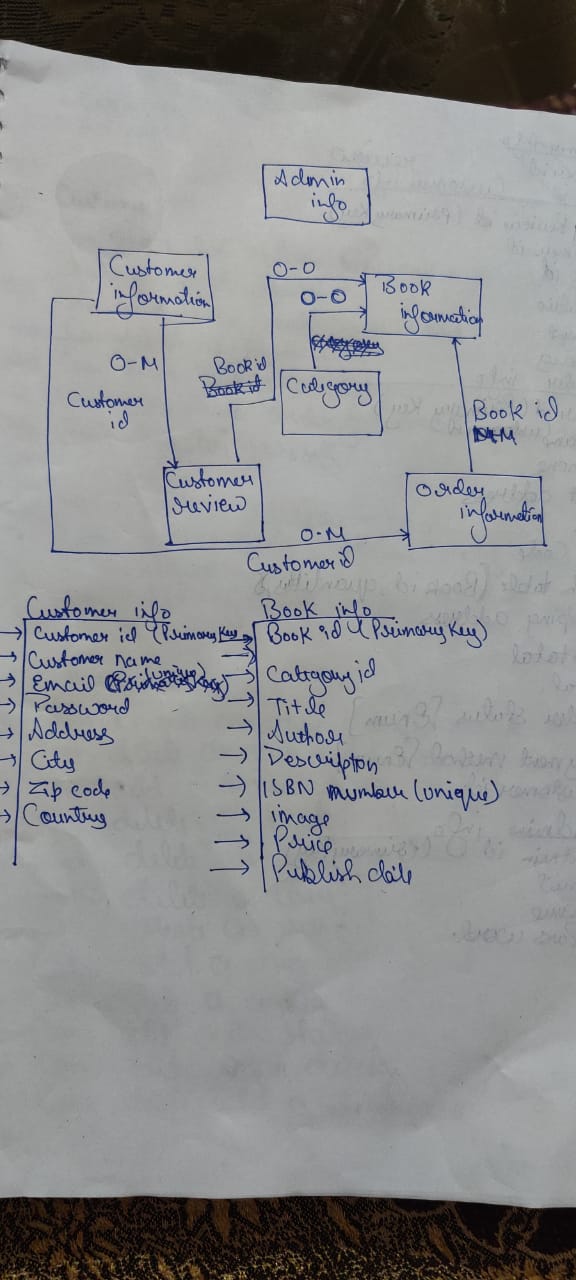 Admin
info
Customer
information
O-O
O-O
Book
information
O-M
Customer
id
Book id
Category
Book id
Customer
review
Order
information
O-M
Customer id
Customer info
Customer id (Primary Key
Customer name
Email (unique)
Password
Address
City
Zip code
Country
Book info
Book id (Primary Key)
Category id
Title
Author
Description
ISBN number (unique)
image
Price
Publish date